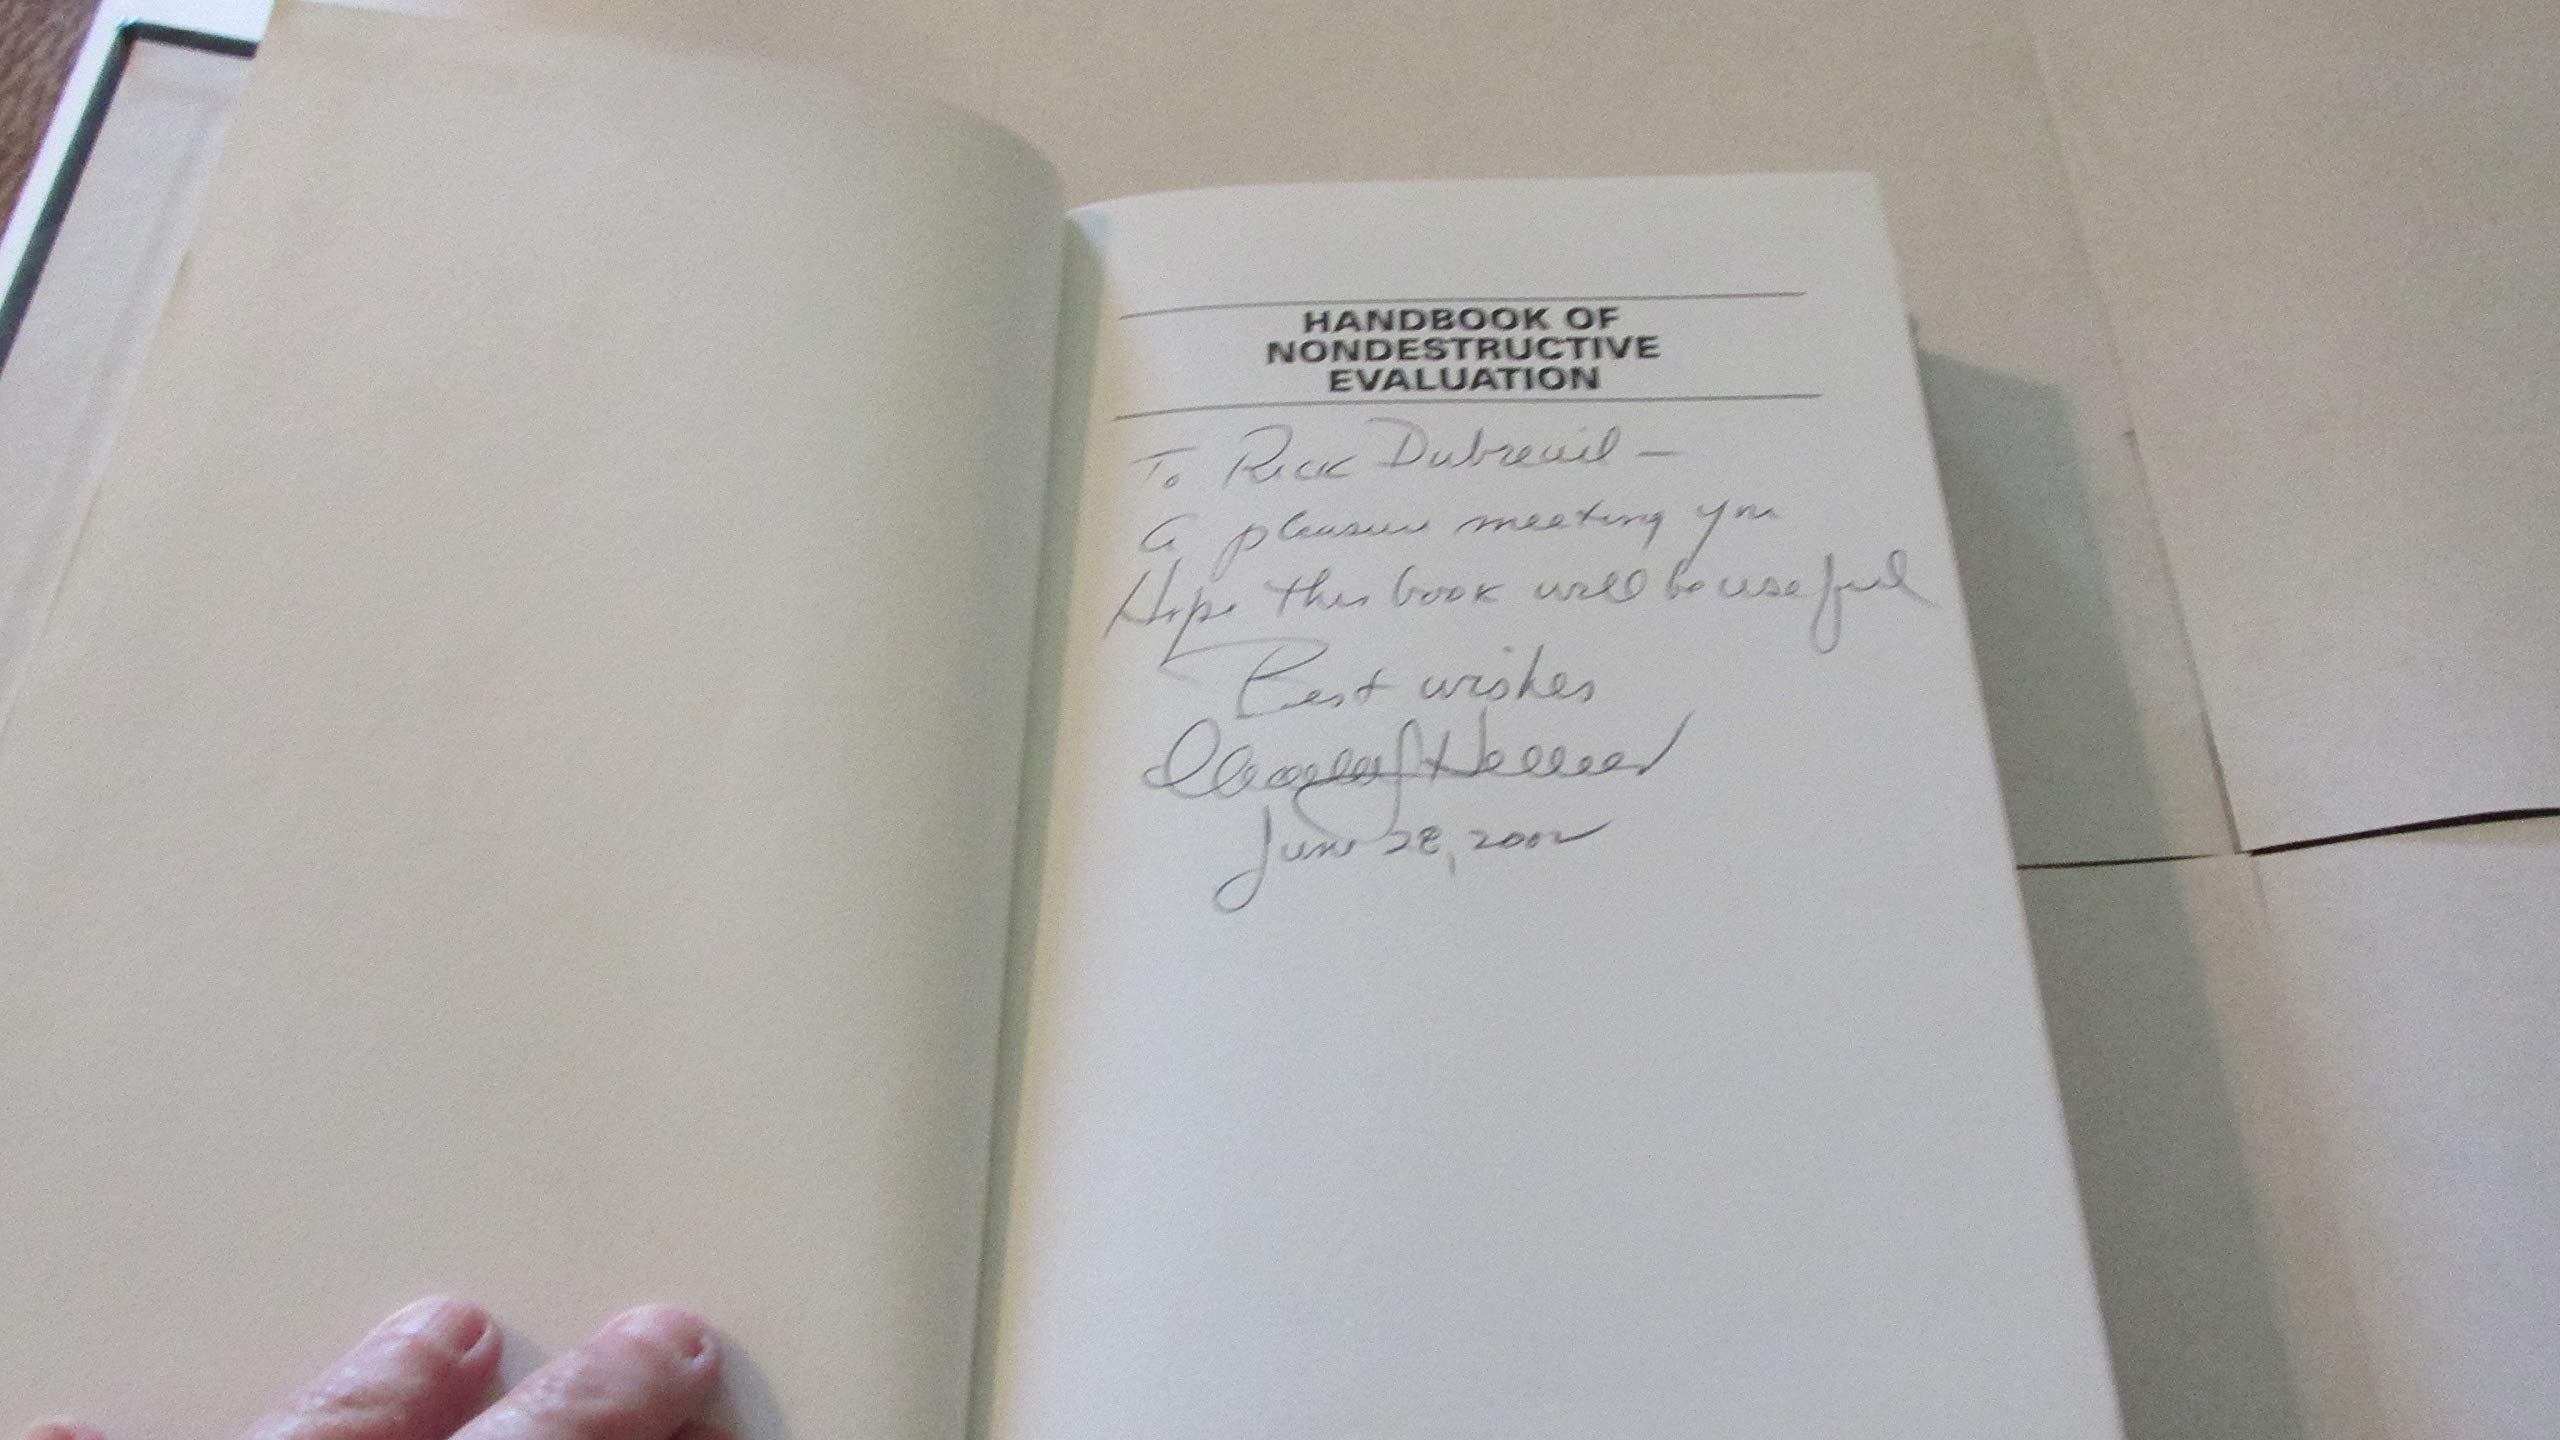 HANDBOOK OF
NONDESTRUCTIVE
EVALUATION
To Rick Dubreuil —
A pleasure meeting you
Hope this book will be useful
Best wishes
Charles J Hellier
June 28, 2002